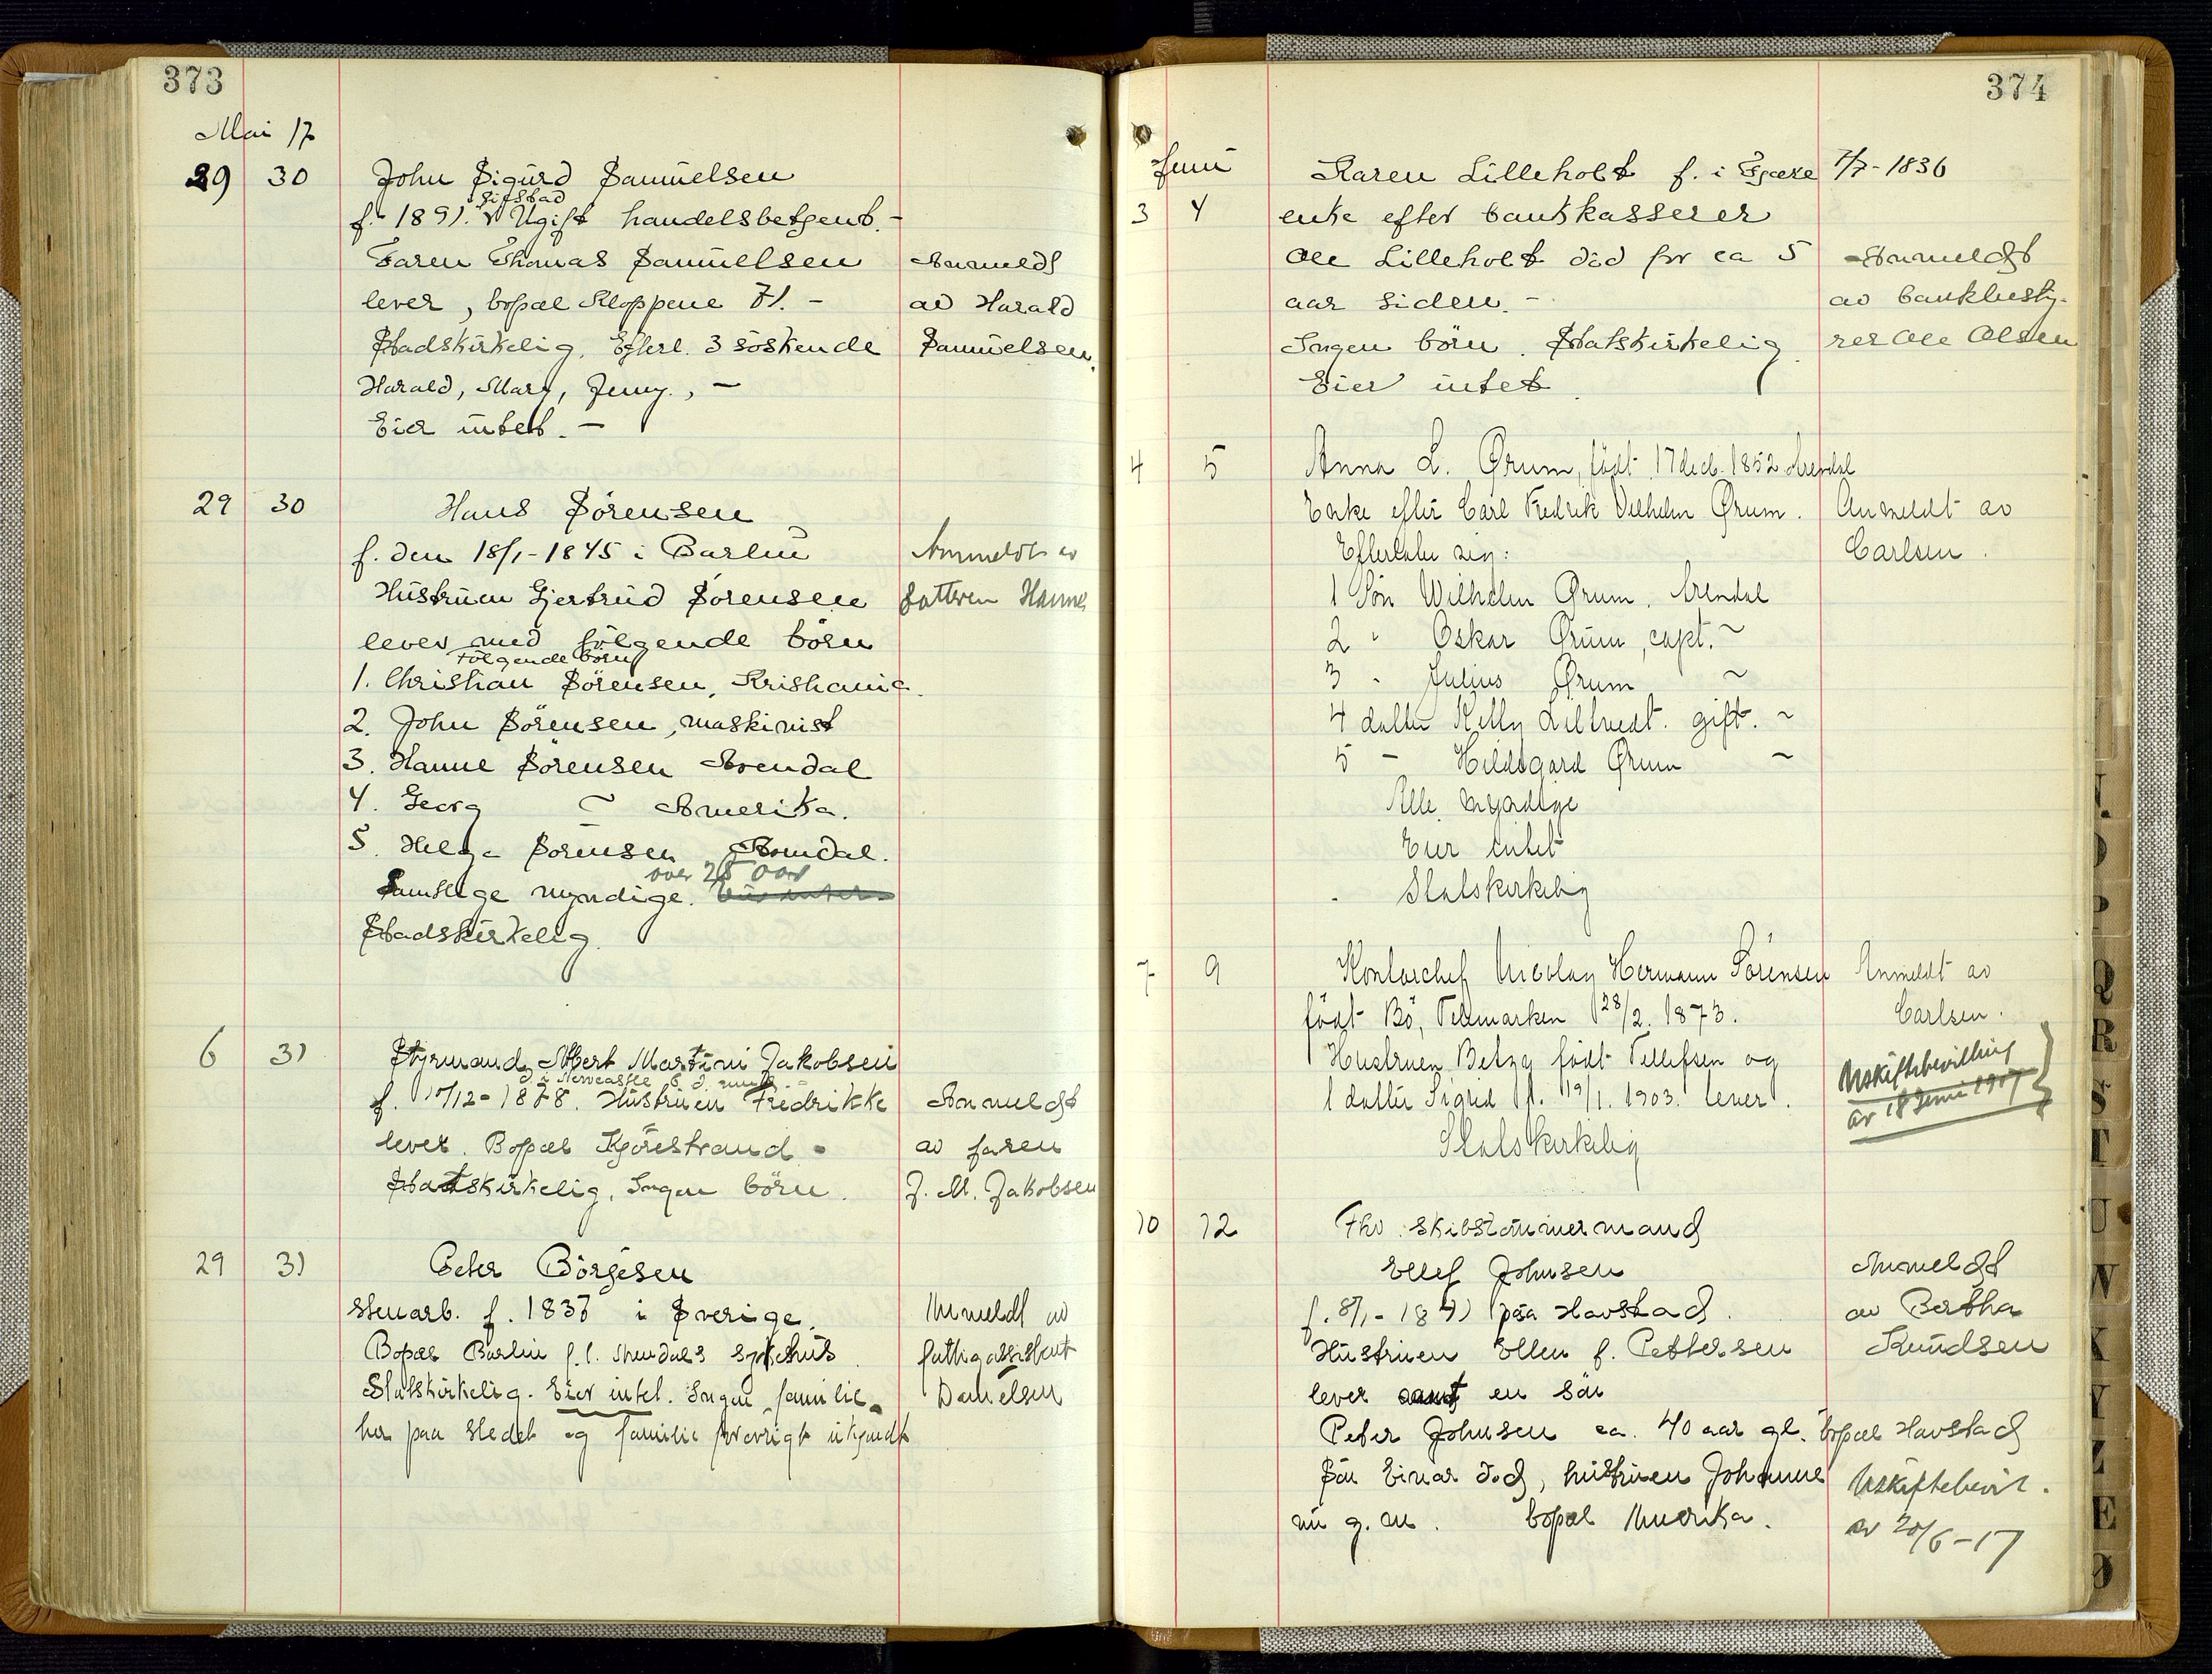 373
Mai 17
29 30 John Sigurd Samuelsen
f. 1891. Ugift handelsbetjent. -
Faren Thomas Samuelsen Anmeldt
lever, bopæl Kloppene 71. - av Harald
Stadskirkelig. Efterl. 3 söskende Samuelsen.
Harald, Mary, Jenny., -
Eier intet. -
29 30 Hans Sörensen
f. den 18/1-1845 i Barbu Anmeldt av
Hustruen Gjertrud Sörensen datteren Hanne
lever med fölgende börn
Fölgende börn
1. Christian Sörensen, Kristiania.
2. John Sörensen, maskinist
3. Hanne Sörensen Arendal
4. Georg ~ Amerika.
5. Helga Sörensen Arendal.
over 25 aar
Samtlige myndige. Eier intet
Stadskirkelig.
6 31 Styrmand Albert Martini Jakobsen
d. i Newcastle 6 d. mnd. -
f. 10/12-1878. Hustruen Fredrikke Anmeldt
lever. Bopæl Kjörestrand av faren
Statskirkelig, Ingen börn. J. M. Jakobsen
29 31 Peter Börgesen
stenarb. f. 1837 i Sverige. Anmeldt av
Bopæl Barbu f.t. Arendals sykehus fattigassistent
Statskirkelig. Eier intet. Ingen familie Danielsen
her paa stedet og familie forövrigt ukjendt
374
Juni Karen Lilleholt f. i Fjære 7/7-1836
3 4 enke efter bankkasserer
Ole Lilleholt död for ca 5 Anmeldt
aar siden. - av bankbesty-
Ingen börn. Statskirkelig. rer Ole Olsen
Eier intet.
4 5 Anna L. Ørum, födt 17 decb. 1852 Arendal
Enke efter Carl Fredrik Vilhelm Ørum. Anmeldt av
Efterlater sig: Carlsen.
1 Sön Wilhelm Ørum, Arendal
2 " Oskar Ørum, capt. ~
3 " Julius Ørum ~
4 datter Kelly Liltvedt. gift. ~
5 - Hildegard Ørum ~
Alle myndige
Eier intet
Statskirkelig
7 9 Kontorchef Nicolay Hermann Sörensen Anmeldt av
födt Bö, Telemarken 28/2. 1873. Carlsen.
Hustruen Betzy födt Tellefsen og
1 datter Sigrid f. 19/1. 1903. lever. Uskiftebevilling
av 18 Juni 1917
Statskirkelig
10 12 Fhv. skibstömmermand
Ellef Johnsen Anmeldt
f. 8/1-1841 paa Havstad. av Bertha
Hustruen Ellen f. Pettersen Knudsen
lever samt en sön
Peter Johnsen ca. 40 aar gl. bopæl Havstad
Sön Einar död, hustruen Johanne Uskiftebevil.
nu g. m. bopæl Amerika. av 20/6-17
N. O P Q R S T U W X Y Z Æ Ø